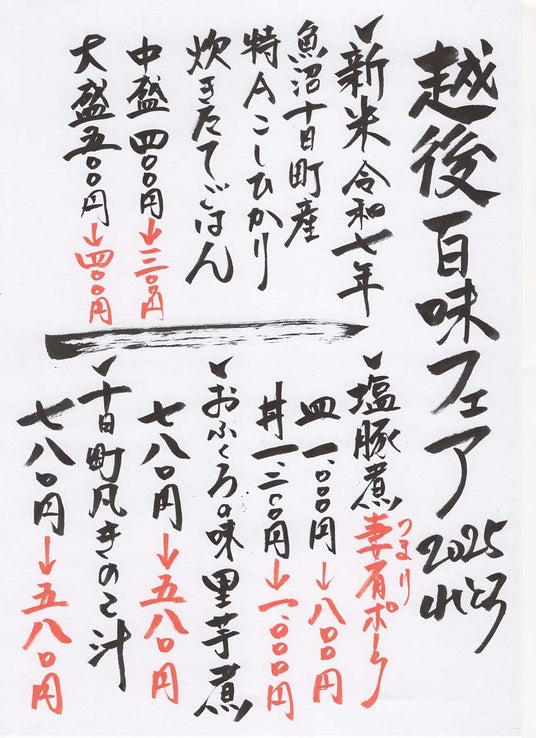 越後百味フェア
2025
✓新米令和七年
魚沼十日町産
特Aこしひかり
炊きたてごはん
中盛四〇〇円→三〇〇円
大盛五〇〇円→四〇〇円
✓塩豚煮
つまり
妻有ポーク
皿一、〇〇〇円→八〇〇円
丼一、二〇〇円→一、〇〇〇円
✓おふくろの味 里芋煮
七八〇円→五八〇円
✓十日町凡きのこ汁
七八〇円→五八〇円